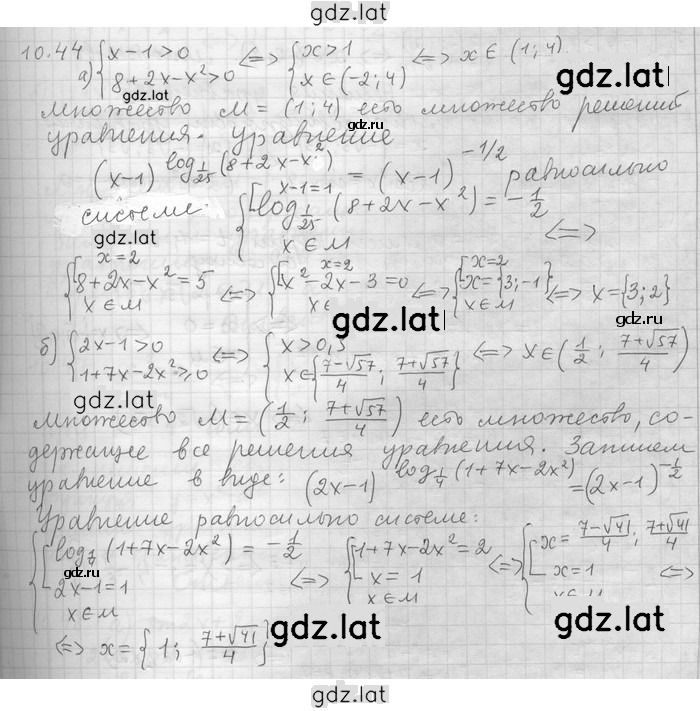 gdz.lat
10.44
а) { x-1>0 ; 8+2x-x²>0 <=> { x>1 ; x∈(-2;4) <=> x∈(1;4).
gdz.lat
множество M=(1;4) есть множество решений
gdz.ru
уравнения. Уравнение
(x-1)^(log_{1/25}(8+2x-x²)) = (x-1)^(-1/2) равносильно
gdz.lat
системе: { [ x-1=1 ; log_{1/25}(8+2x-x²) = -1/2 ; x∈M <=>
gdz.lat
{ [ x=2 ; 8+2x-x²=5 ; x∈M <=> { [ x=2 ; x²-2x-3=0 ; x∈ <=> { [ x=2 ; x={3;-1} ; x∈M <=> x={3;2}
gdz.lat
б) { 2x-1>0 ; 1+7x-2x²>,0 <=> { x>0,5 ; x∈{(7-√57)/4 ; (7+√57)/4} <=> x∈(1/2 ; (7+√57)/4)
gdz.lat
множество M=(1/2 ; (7+√57)/4) есть множество, со-
держащее все решения уравнения. Запишем
gdz.ru
уравнение в виде: (2x-1)^(log_{1/4}(1+7x-2x²)) = (2x-1)^(-1/2)
Уравнение равносильно системе:
{ [ log_{1/4}(1+7x-2x²) = -1/2 ; 2x-1=1 ; x∈M <=> { [ 1+7x-2x²=2 ; x=1 ; x∈M <=> { [ x=(7-√41)/4 ; (7+√41)/4 ; x=1 ; x∈M <=>
gdz.ru
gdz.lat
gdz.lat
<=> x={1; (7+√41)/4}
gdz.lat